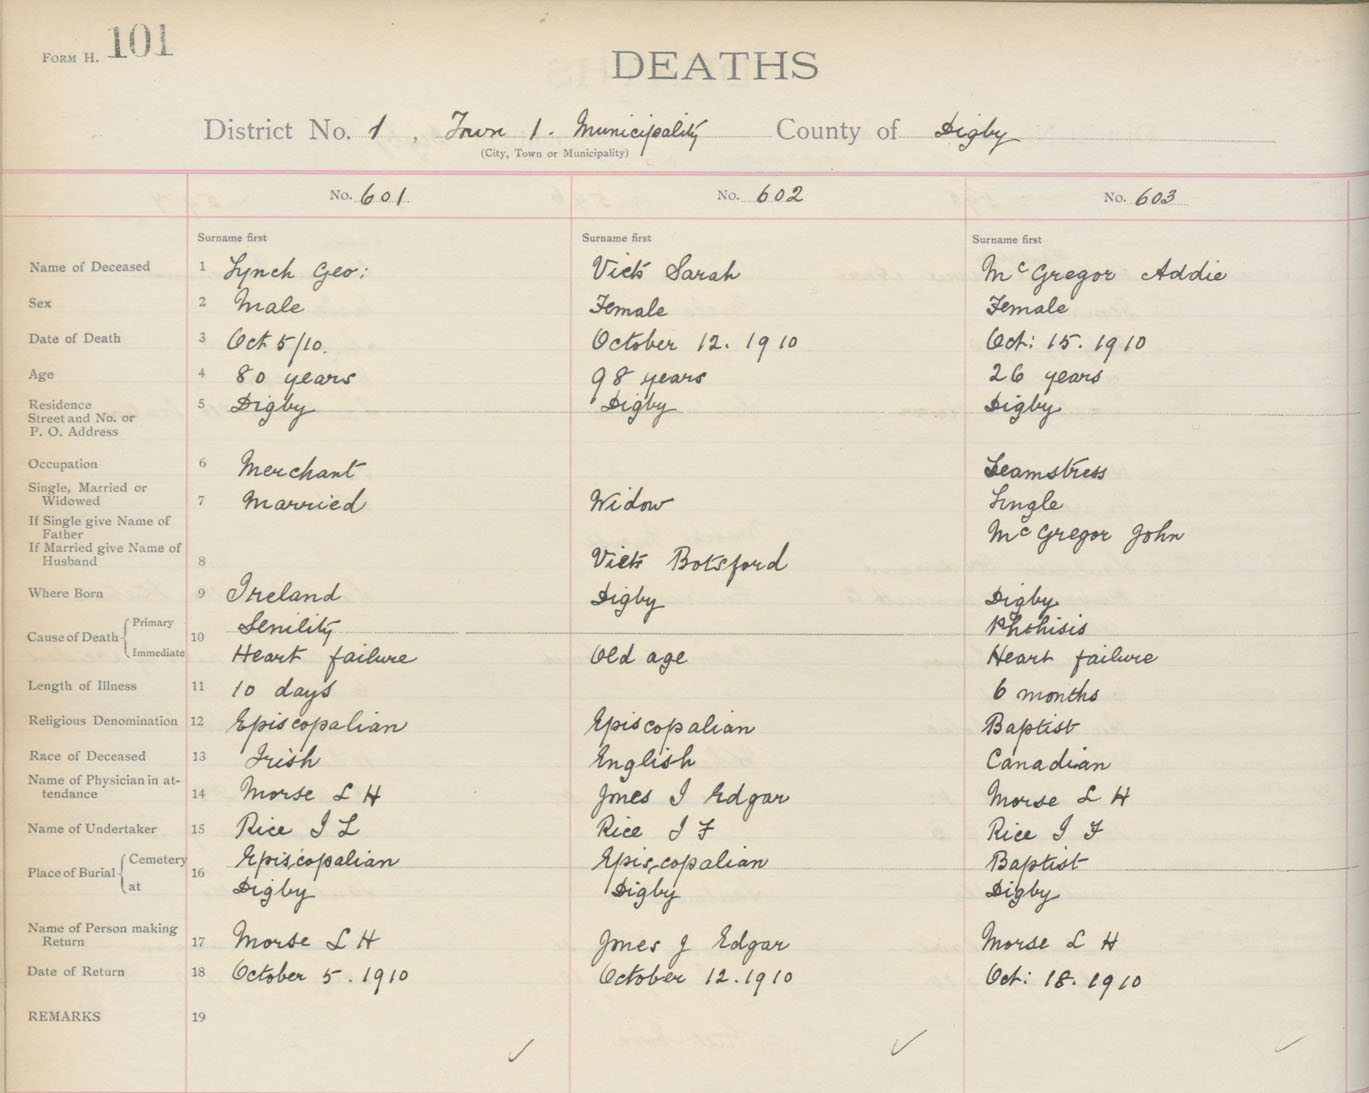 FORM H. 101
DEATHS
District No. 1, Town 1. Municipality County of Digby
(City, Town or Municipality)
No. 601 No. 602 No. 603
Surname first Surname first Surname first
Name of Deceased 1 Lynch Geo: Vick Sarah McGregor Addie
Sex 2 Male Female Female
Date of Death 3 Oct 5/10. October 12. 1910 Oct: 15. 1910
Age 4 80 years 98 years 26 years
Residence
Street and No. or
P. O. Address 5 Digby Digby Digby
Occupation 6 Merchant Seamstress
Single, Married or
Widowed 7 Married Widow Single
If Single give Name of
Father McGregor John
If Married give Name of
Husband 8 Viets Botsford
Where Born 9 Ireland Digby Digby
Cause of Death 10 Primary Senility Phthisis
Immediate Heart failure Old age Heart failure
Length of Illness 11 10 days 6 months
Religious Denomination 12 Episcopalian Episcopalian Baptist
Race of Deceased 13 Irish English Canadian
Name of Physician in at-
tendance 14 Morse L H Jones J Edgar Morse L H
Name of Undertaker 15 Rice J L Rice J F Rice J F
Place of Burial 16 Cemetery Episcopalian Episcopalian Baptist
at Digby Digby Digby
Name of Person making
Return 17 Morse L H Jones J Edgar Morse L H
Date of Return 18 October 5. 1910 October 12. 1910 Oct: 18. 1910
REMARKS 19